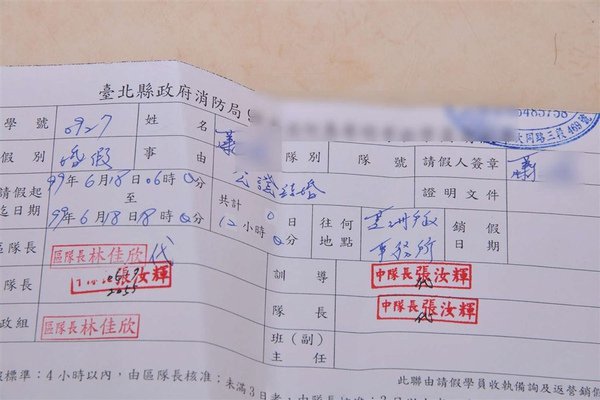 臺北縣政府消防局9
5485758
大同路三段469號
學號 0927 姓名 蕭 隊別 隊號 請假人簽章 蕭
請假別 婚假 事由 公證結婚 證明文件
請假起迄日期 99年6月18日06時0分至99年6月18日18時0分 共計0日12小時0分 往何地點 事務所 銷假日期
區隊長 區隊長林佳欣 代 訓導 中隊長張汝輝 代
隊長 張汝輝 隊長 中隊長張汝輝 代
政組 區隊長林佳欣 班(副)主任
假標準：4小時以內，由區隊長核准；未滿3日者，由隊長
此聯由請假學員收執備詢及返營銷假